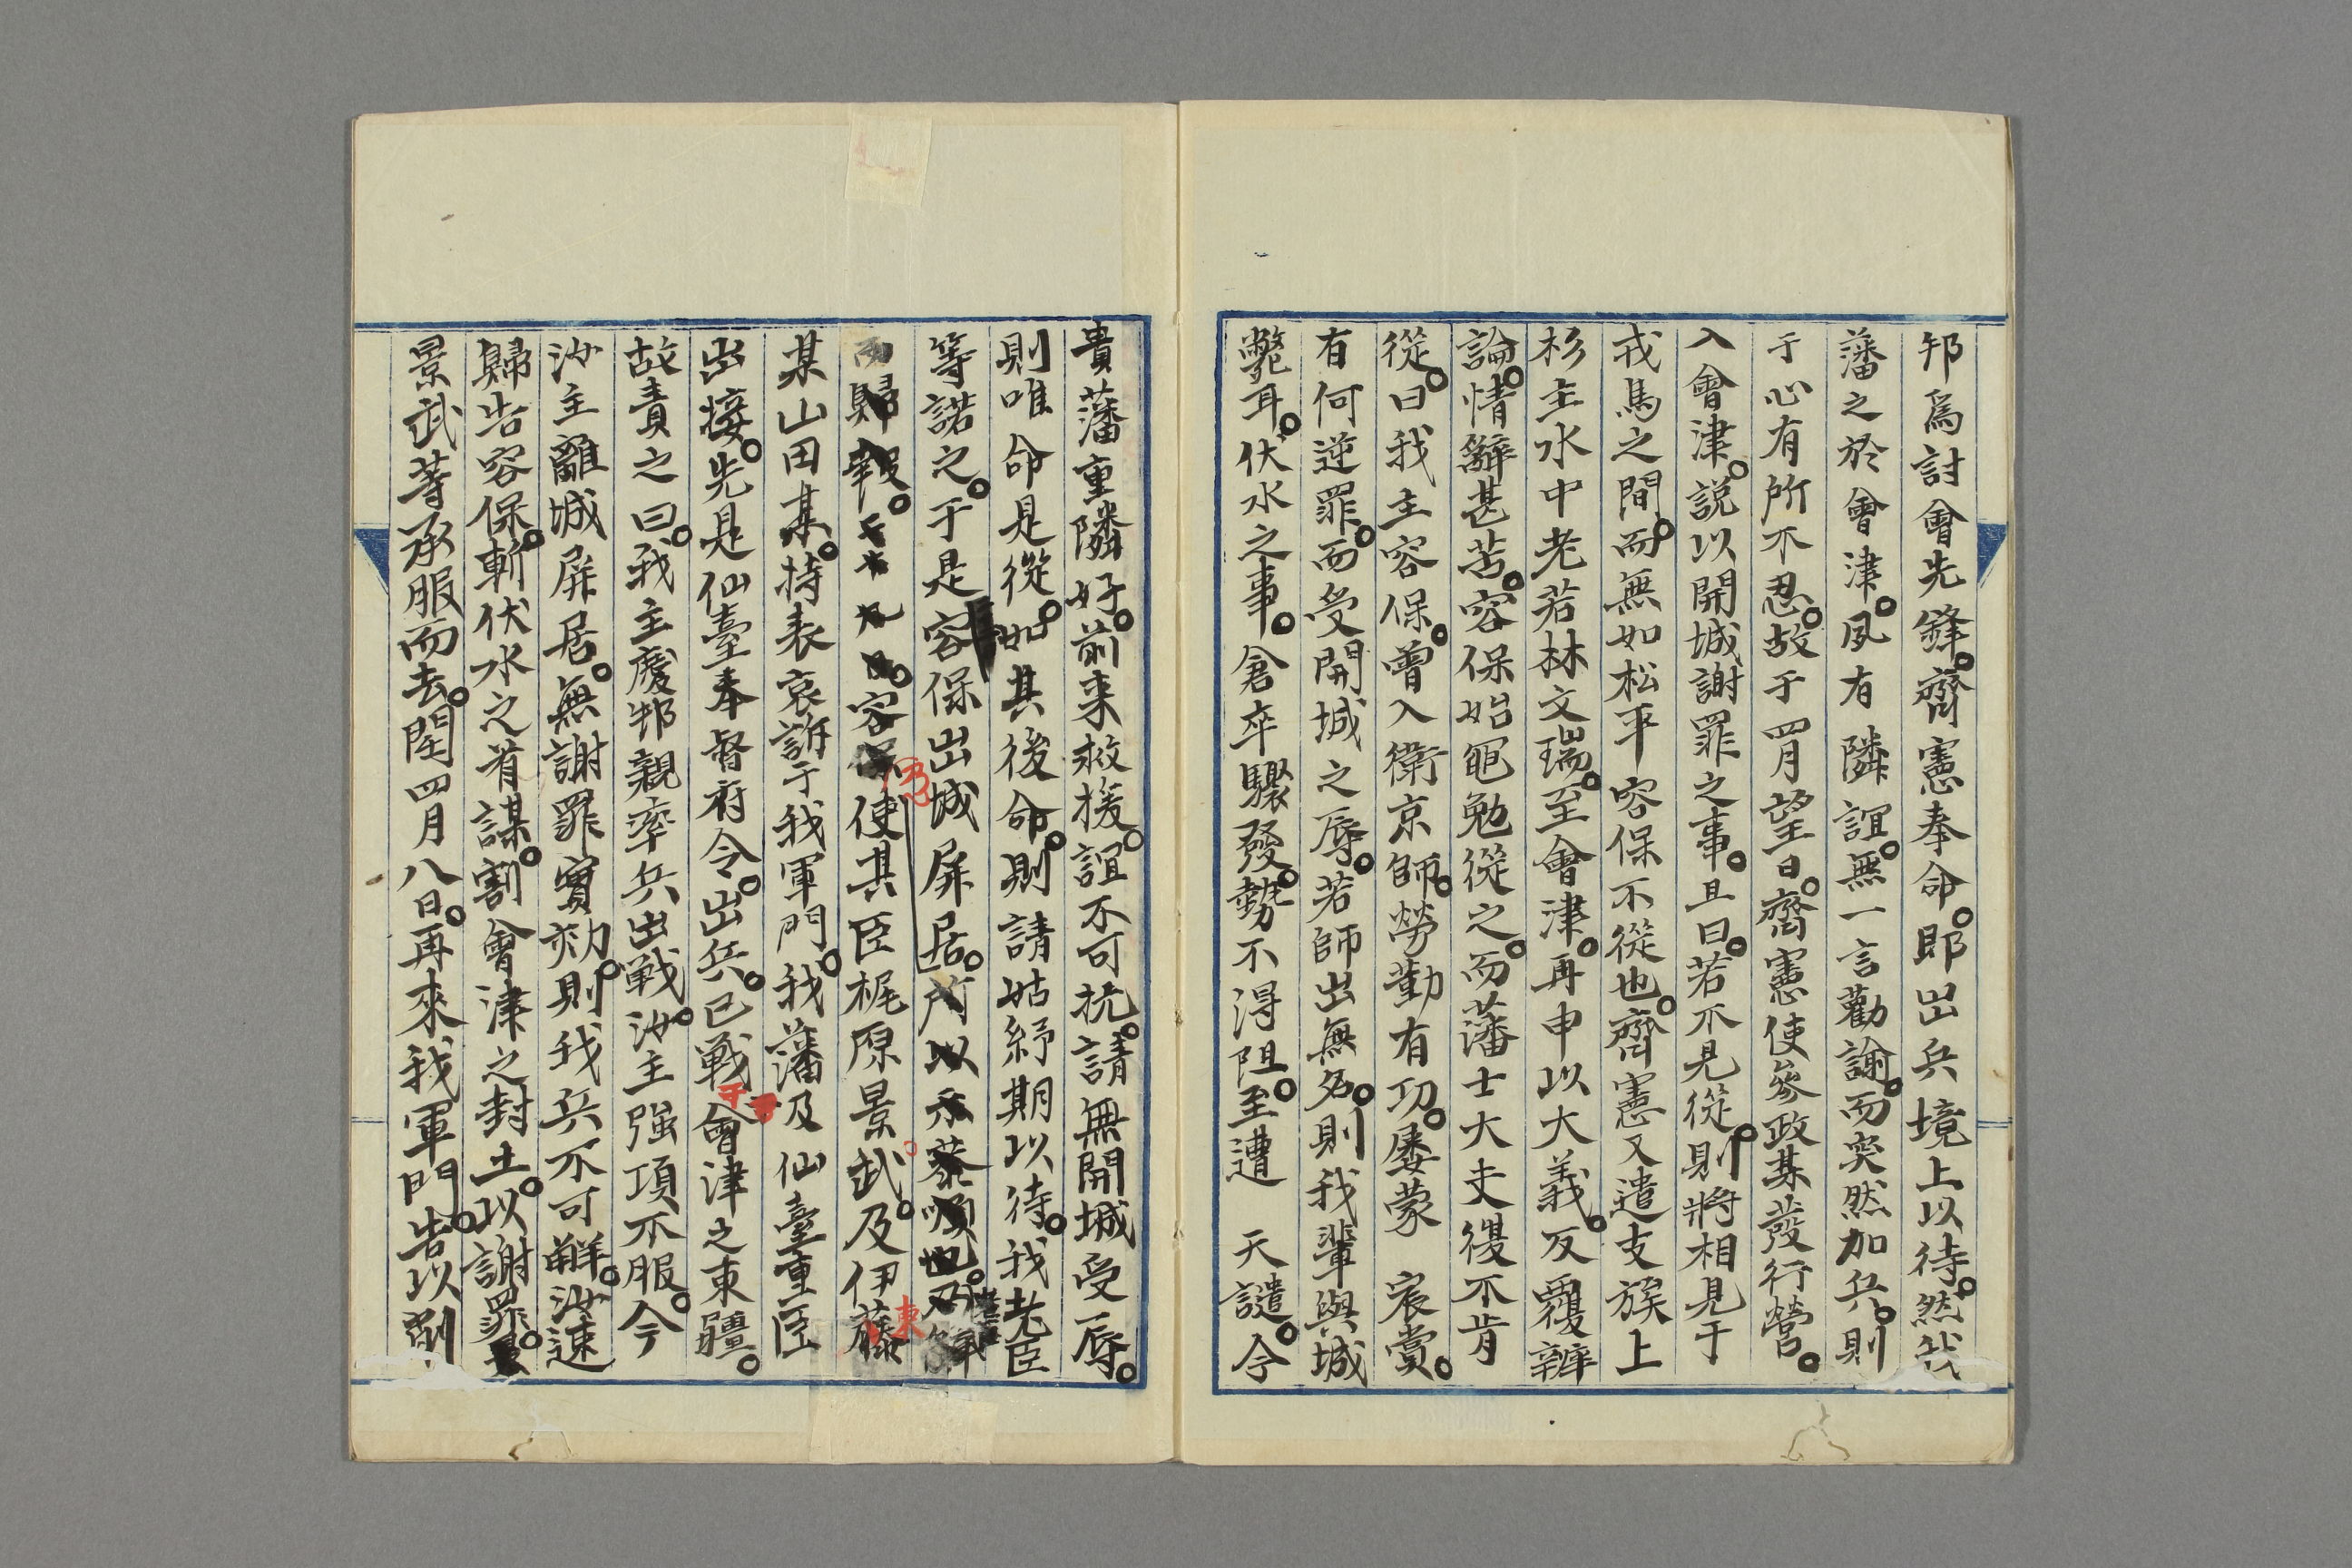 邦爲討會先鋒。齊憲奉命。即出兵境上以待。然我
藩之於會津。夙有隣誼。無一言勸諭。而突然加兵。則
于心有所不忍。故于四月望日。齊憲使參政某發行營。
入會津。説以開城謝罪之事。且曰。若不見從。則將相見于
戎馬之間。而無如松平容保不從也。齊憲又遣支族上
杉主水中老若林文瑞。至會津。再申以大義。反覆辨
論。情辭甚苦。容保始黽勉從之。而藩士大夫復不肯
從。曰我主容保。曾入衛京師。勞勤有功。屡蒙　宸賞。
有何逆罪。而受開城之辱。若師出無名。則我輩與城
斃耳。伏水之事。倉卒驟發。勢不得阻。至遭　天譴。今
貴藩重隣好。前来救援。誼不可抗。請無開城受辱。
則唯命是從。如其後命。則請姑紓期以待。我老臣
等諾之。于是容保出城屏居。所以示恭順也。乃
而歸報。容保使其臣梶原景武。及伊藤
某山田某。持表哀訴于我軍門。我藩及仙臺重臣
出接。先是仙臺奉督府令。出兵。已戰于會津之東疆。
故責之曰。我主慶邦親率兵出戰。汝主强項不服。今
汝主離城屏居。無謝罪實効。則我兵不可解。汝速
歸告容保。斬伏水之首謀。割會津之封土。以謝罪。
景武等承服而去。閏四月八日。再來我軍門。告以削